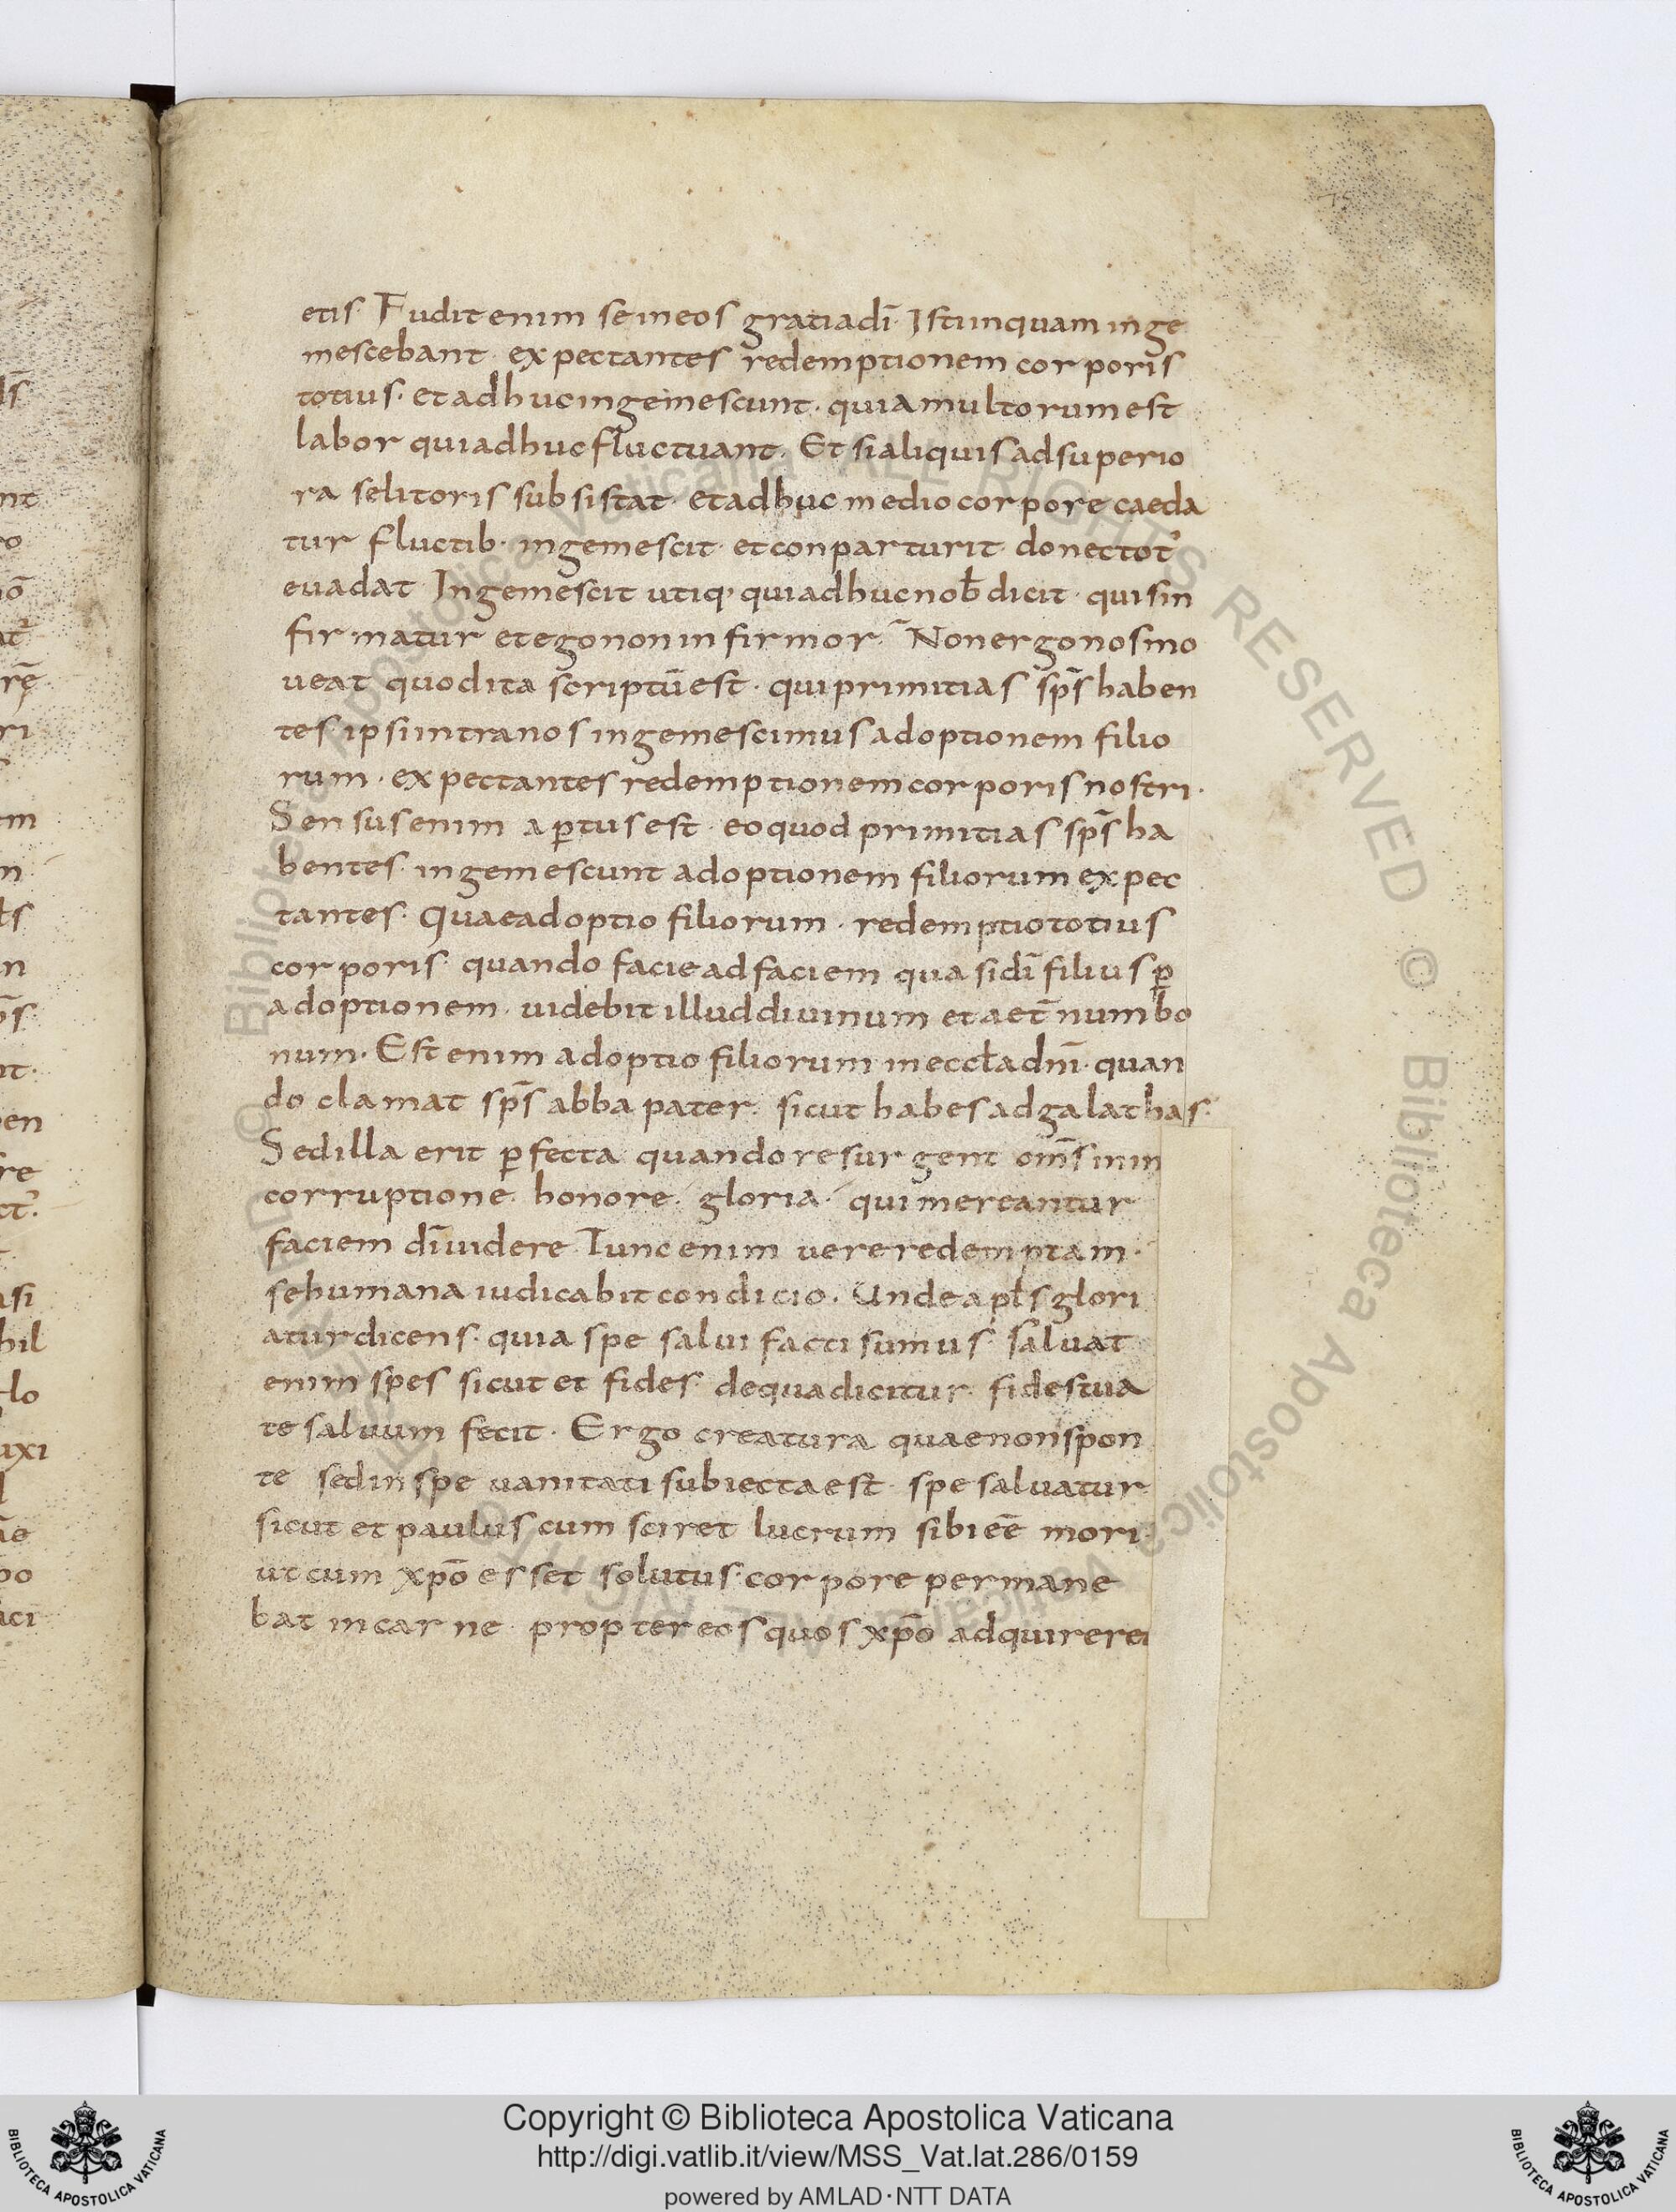 etis. Fudit enim se in eos gratia dī. Isti inquam inge
mescebant. expectantes redemptionem corporis
totius. et adhuc ingemescunt. quia multorum est
labor qui adhuc fluctuant. Et si aliquis ad superio
ra se litoris subsistat. et adhuc medio corpore caeda
tur fluctib. ingemescit. et conparturit. donec tot᾽
euadat. Ingemescit utiq, qui adhuc nob̄ dicit. quis in
firmatur et ego non infirmor. Non ergo nos mo
ueat quod ita scriptū est. qui primitias sp̄s haben
tes ipsi intra nos ingemescimus adoptionem filio
rum. expectantes redemptionem corporis nostri.
Sensus enim apertus est. eo quod primitias sp̄s ha
bentes. ingemescunt adoptionem filiorum expec
tantes. Quae adoptio filiorum. redemptio totius
corporis. quando facie ad faciem quasi dī filius p̱
adoptionem. uidebit illud diuinum et aet̄num bo
num. Est enim adoptio filiorum in eccła dn̄i. quan
do clamat sp̄s abba pater. sicut habes ad galathas.
Sed illa erit p̱fecta quando resurgent om̄s in in
corruptione. honore. gloria. qui mereantur
faciem dī uidere. Tunc enim uere redemptam.
se humana iudicabit condicio. Unde apłs glori
atur dicens. quia spe salui facti sumus. saluat
enim spes sicut et fides. de qua dicitur. fides tua
te saluum fecit. Ergo creatura quae non spon
te sed in spe uanitati subiecta est. spe saluatur
sicut et paulus cum sciret lucrum sibi eē mori.
ut cum xp̄o esset solutus. corpore permane
bat in carne. propter eos quos xp̄o adquireret
Copyright © Biblioteca Apostolica Vaticana
http://digi.vatlib.it/view/MSS_Vat.lat.286/0159
powered by AMLAD·NTT DATA